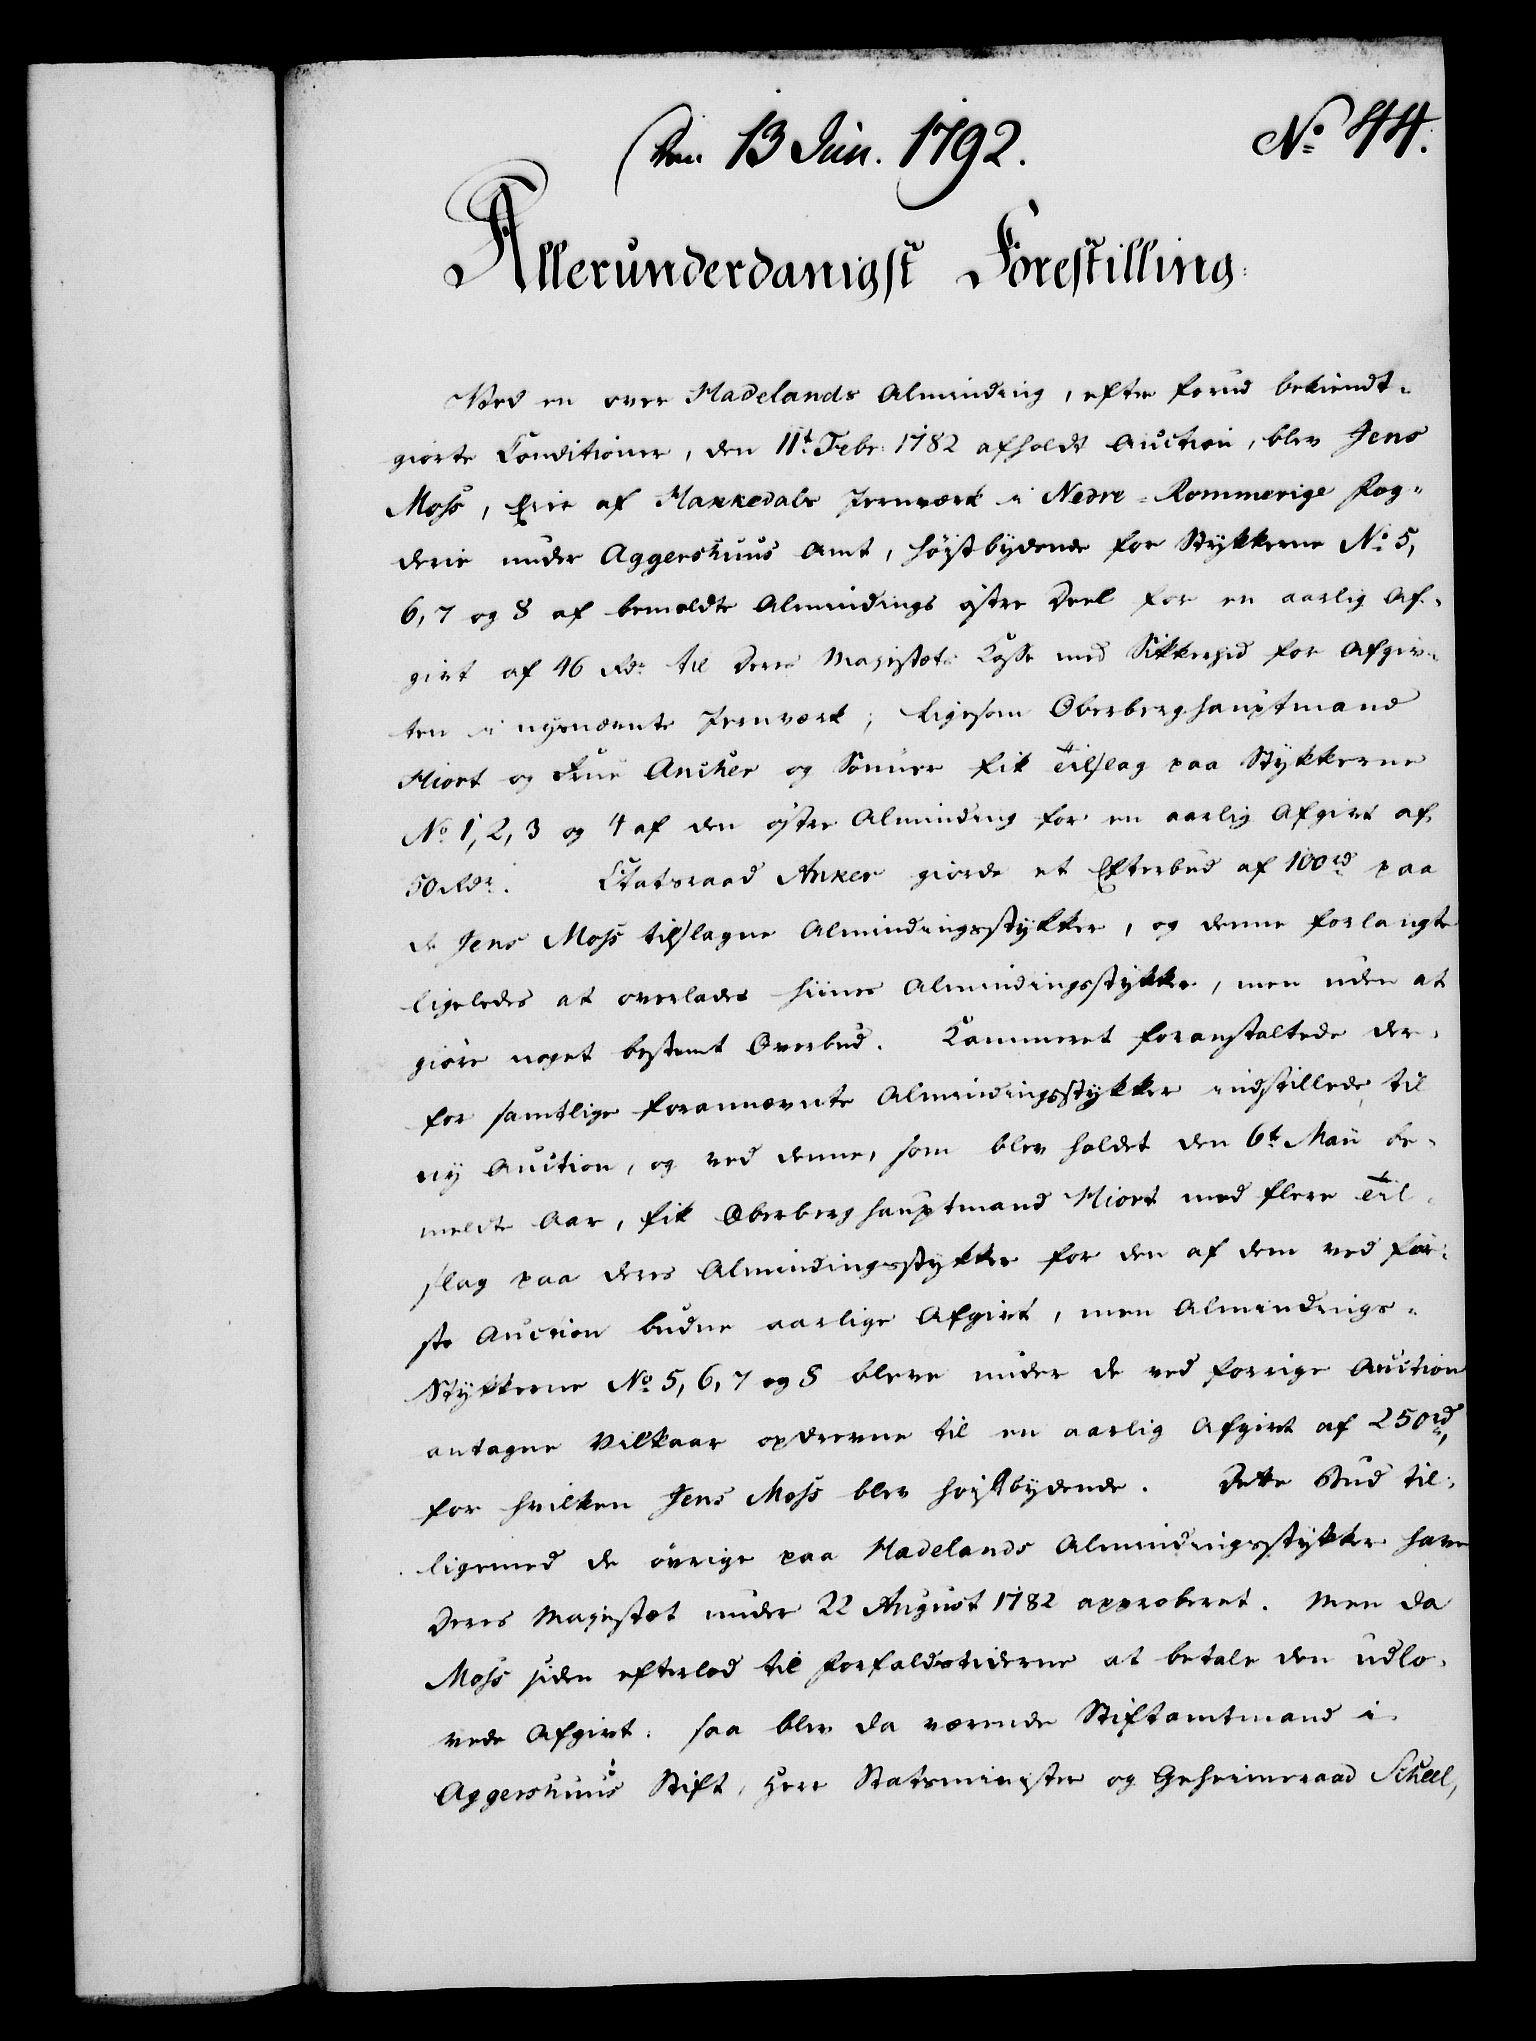 Den 13 Jun. 1792.
No 44.
Allerunderdanigst Forestilling.
Ved en over Hadelands Alminding, efter forud bekiendt-
giorte Conditioner, den 11t Febr: 1782 afholdt Auction, blev Jens
Moss, Eier af Hakkedals Jernværk i Nedre-Rommerige Fog-
derie under Aggershuus Amt, høystbydende for Stykkerne No 5,
6, 7 og 8 af bemeldte Almindings østre Deel for en aarlig Af-
givt af 46 Rdr til Deres Majestæts Casse med Sikkerhed for Afgiv-
ten i nysnævnte Jernværk; ligesom Oberberghauptmand
Hiort og Frue Ancher og Sønner fik Tilslag paa Stykkerne
No 1, 2, 3 og 4 af den østre Alminding for en aarlig Afgivt af
50 Rdr. Etatsraad Anker giorde et Efterbud af 100 rd paa
de Jens Moss tilslagne Almindingsstykker, og denne forlangte
ligeledes at overlades hiines Almindingsstykker, men uden at
giøre noget bestemt Overbud. Kammeret foranstaltede der-
for samtlige forannævnte Almindingsstykker indstillede til
ny Auction, og ved denne, som blev holdet den 6t Maii be-
meldte Aar, fik Oberberghauptmand Hiort med flere Til-
slag paa deres Almindingsstykker for den af dem ved før-
ste Auction budne aarlige Afgivt, men Almindings-
Stykkerne No 5, 6, 7 og 8 bleve under de ved forrige Auction
antagne Vilkaar opdrevne til en aarlig Afgivt af 250 rd,
for hvilken Jens Moss blev høystbydende. Dette Bud til-
ligemed de øvrige paa Hadelands Almindingsstykker have
Deres Majestæt under 22 August 1782 approberet. Men da
Moss siden efterlod til Forfaldstiderne at betale den udlo-
vede Afgivt. saa blev da værende Stiftamtmand i
Aggershuus Stift, Herr Statsminister og Geheimeraad Scheel,